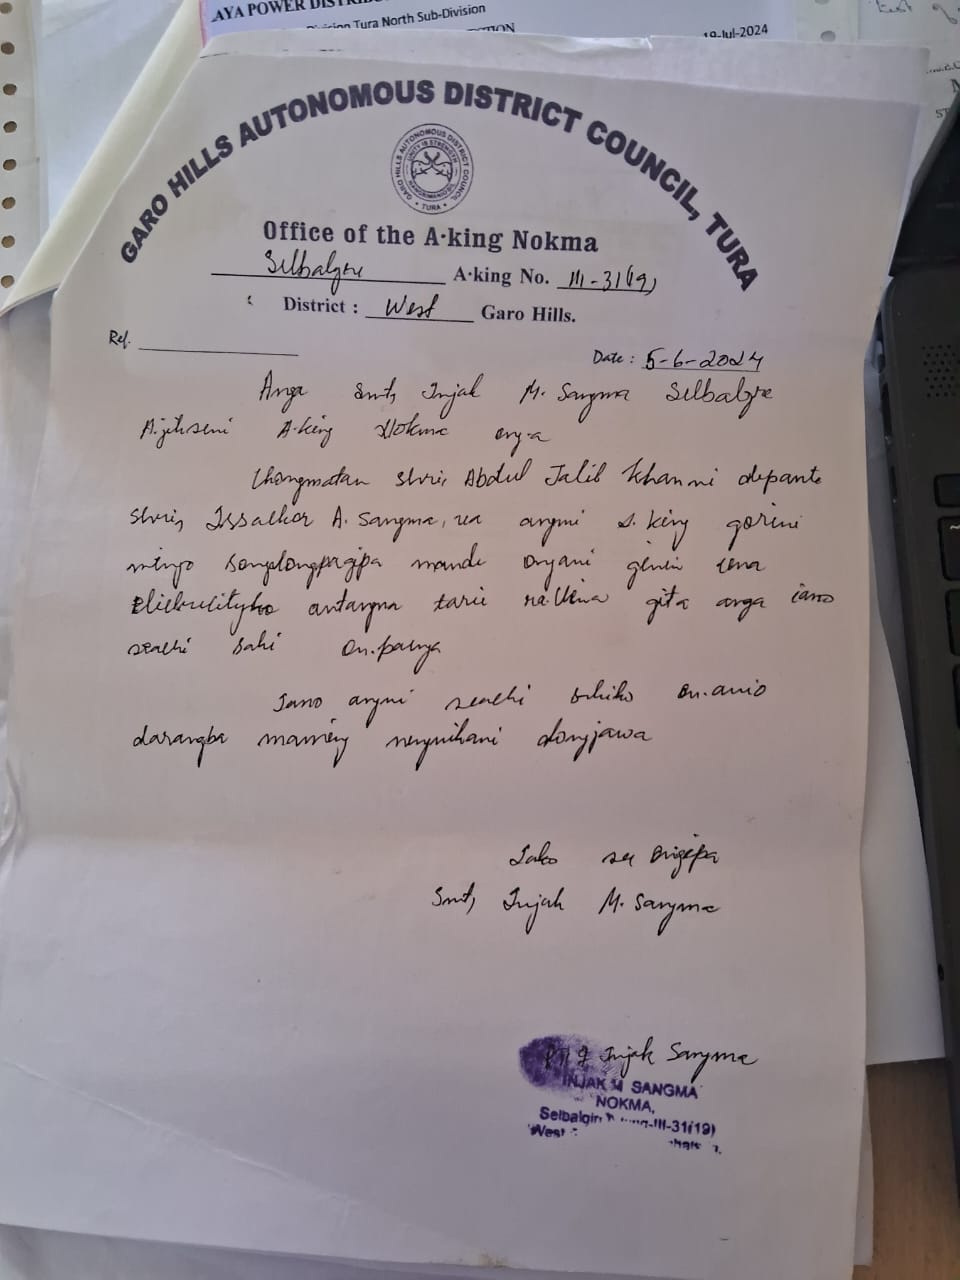 AYA POWER DISTRIB
Division Tura North Sub-Division
19-Jul-2024
GARO HILLS AUTONOMOUS DISTRICT COUNCIL, TURA
GARO HILLS AUTONOMOUS DISTRICT COUNCIL
UNITY IS STRENGTH
TURA
Office of the A·king Nokma
Selbalgre A·king No. III-31(19)
District : West Garo Hills.
Ref.
Date : 5-6-2024
Anga Smt, Injak M. Sangma Selbalgre
A·king Nokma ong·a
Chongmatan Shri, Abdul Jalil Khanni depante
Shri, A. Sangma, ua angni a·king gorini
songdongpagipa mande ongani gimin una
antangna tarie ra·kina gita anga iano
sealhi sahi on·pa·enga
Iano angni sealhi sahiko on·anio
darangba mamung nengnikani dongjawa
Iako see on·gipa
Smt, Injak M. Sangma
Injak Sangma
INJAK M SANGMA
NOKMA,
Selbalgiri III-31(19)
West